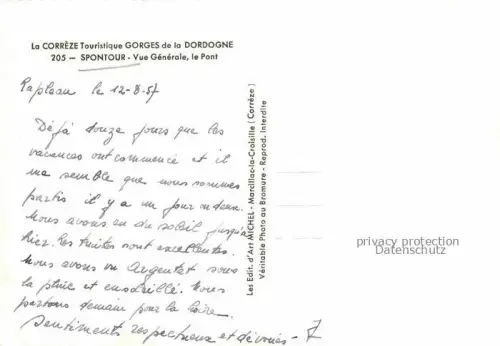 La CORRÈZE Touristique GORGES de la DORDOGNE
205 — SPONTOUR - Vue Générale, le Pont
Lapleau le 12-8-57
Déjà douze jours que les
vacances ont commencé et il
me semble que nous sommes
partis il y a un jour ou deux.
Nous avons eu du soleil jusqu'à
hier. Les truites sont excellentes.
Nous avons vu Argentat sous
la pluie et ensoleillé. Nous
partons demain pour la Loire.
Sentiments respectueux et dévoués -
Les Edit. d'Art MICHEL - Marcillac-la-Croisille (Corrèze)
Véritable Photo au Bromure - Reprod. Interdite
privacy protection
Datenschutz